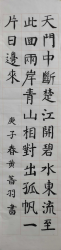 天門中斷楚江開碧水東流至
此回兩岸青山相對出孤帆一
片日邊來
庚子春黄荅羽書